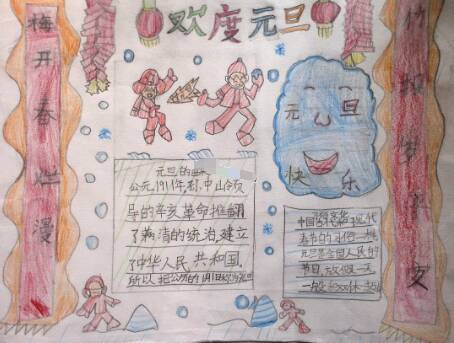 欢度元旦
梅开春烂漫
竹报岁平安
元旦
快乐
元旦的
公元,1911年,孙中山领
导的辛亥革命推翻
了满清的统治,建立
了中华人民,共和国,
所以把公历的
中国
现代
春节的习俗一样,
元旦是全国人民的
节日,放假一天
一般